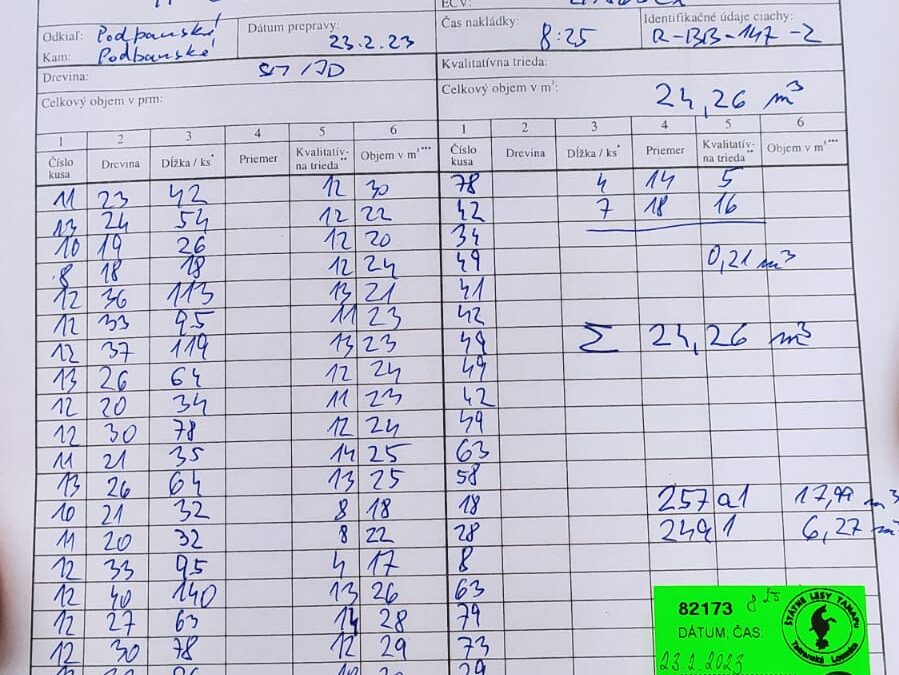 EČV:
Odkiaľ: Podbanské
Dátum prepravy: 23.2.23
Čas nakládky: 8:25
Identifikačné údaje ciachy: R-BB-147-2
Kam: Podbanské
Drevina: SM/JD
Kvalitatívna trieda:
Celkový objem v prm:
Celkový objem v m³: 24,26 m³
1 2 3 4 5 6 1 2 3 4 5 6
Číslo kusa Drevina Dĺžka / ks* Priemer Kvalitatív-na trieda** Objem v m³*** Číslo kusa Drevina Dĺžka / ks* Priemer Kvalitatív-na trieda** Objem v m³***
11 23 42 12 30 78 4 14 5
13 24 54 12 22 42 7 18 16
10 19 26 12 20 34
8 18 18 12 24 49 0,21 m³
12 36 113 13 21 41
12 33 95 11 23 42
12 37 119 13 23 49 Σ 24,26 m³
13 26 64 12 24 49
12 20 34 11 23 42
12 30 78 12 24 49
11 21 35 14 25 63
13 26 64 13 25 58
10 21 32 8 18 18 257a1 17,99 m³
11 20 32 8 22 28 249 1 6,27 m³
12 33 95 4 17 8
12 40 140 13 26 63
12 27 63 14 28 79
12 30 78 12 29 73
29
82173 8 25
DÁTUM, ČAS:
23.2.2023
ŠTÁTNE LESY TANAPu
Tatranská Lomnica